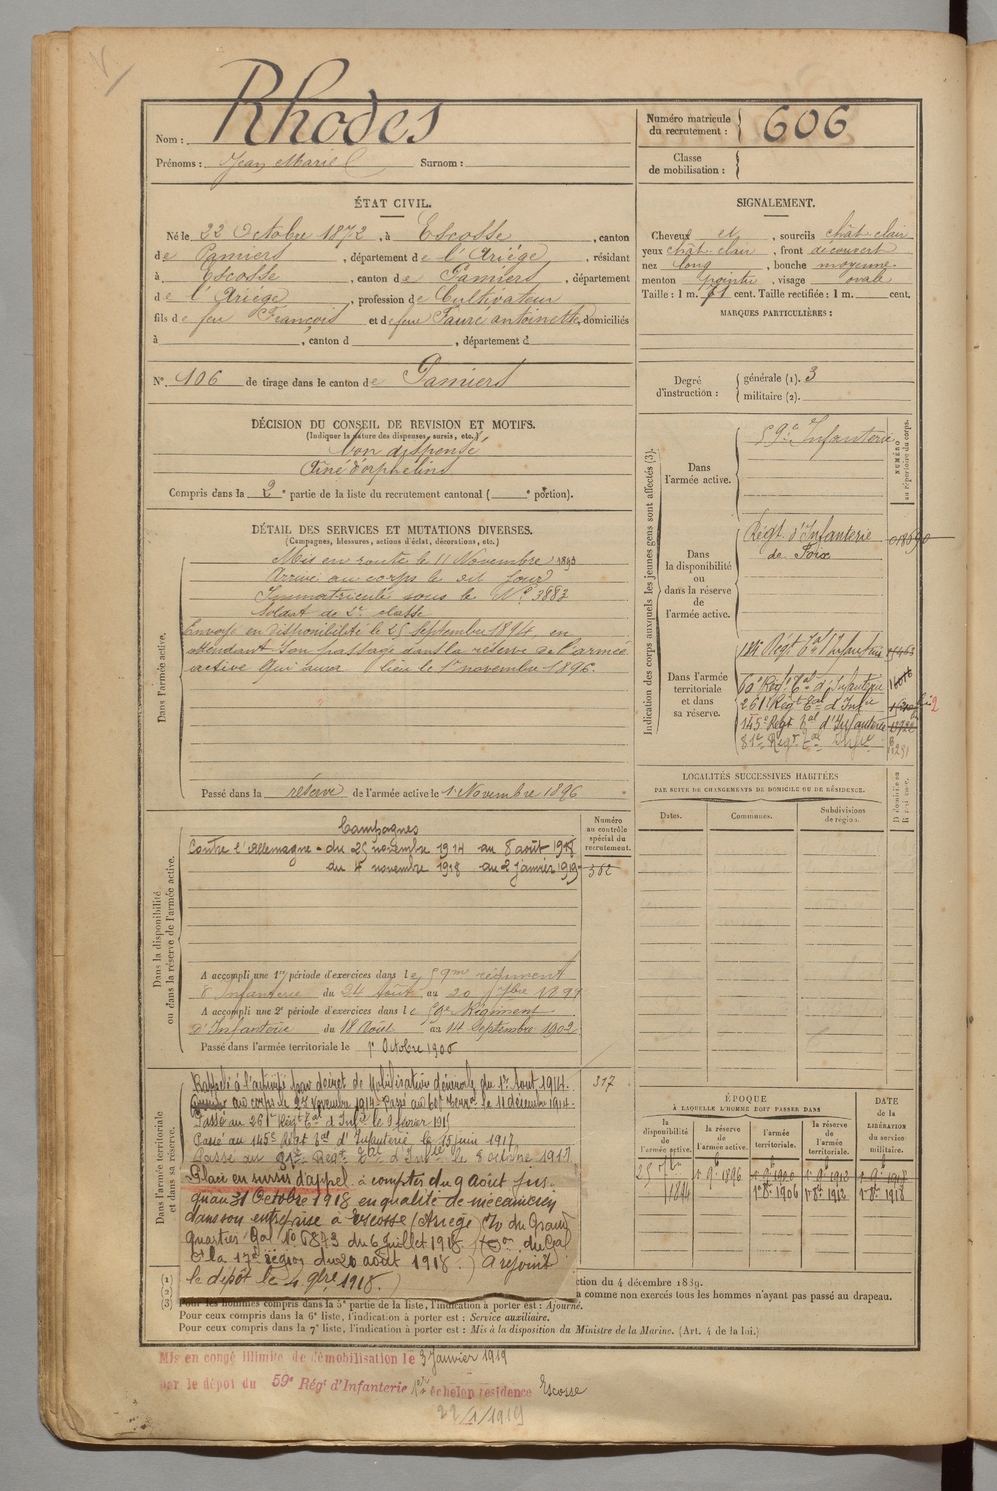 Nom : Rhodes
Prénoms : Jean Marie Surnom :
Numéro matricule du recrutement : 606
Classe de mobilisation :
ÉTAT CIVIL.
Né le 22 Octobre 1872, à Escosse, canton
de Pamiers, département de l'Ariège, résidant
à Escosse, canton de Pamiers, département
de l'Ariège, profession de Cultivateur
fils de feu François et de feue Faure antoinette, domiciliés
à , canton d , département d
N° 106 de tirage dans le canton de Pamiers
SIGNALEMENT.
Cheveux et , sourcils chât-clair
yeux chât-clair, front découvert
nez long, bouche moyenne
menton pointu, visage ovale
Taille : 1 m. 71 cent. Taille rectifiée : 1 m. cent.
MARQUES PARTICULIÈRES :
Degré d'instruction : générale (1). 3
militaire (2).
DÉCISION DU CONSEIL DE REVISION ET MOTIFS.
(Indiquer la nature des dispenses, sursis, etc.)
bon dispensé
Aîné d'orphelins
Compris dans la 2e partie de la liste du recrutement cantonal ( e portion).
DÉTAIL DES SERVICES ET MUTATIONS DIVERSES.
(Campagnes, blessures, actions d'éclat, décorations, etc.)
Dans l'armée active.
Mis en route le 11 Novembre 1893
Arrivé au corps le dit jour
Immatriculé sous le N° 3883
Soldat de 2e classe
Envoyé en disponibilité le 25 Septembre 1894, en
attendant son passage dans la réserve de l'armée
active qui aura lieu le 1er novembre 1896.
Passé dans la réserve de l'armée active le 1 Novembre 1896
Indication des corps auxquels les jeunes gens sont affectés (3).
NUMÉRO au répertoire du corps.
Dans l'armée active.
59e Infanterie
Dans la disponibilité ou dans la réserve de l'armée active.
Régt. d'Infanterie
de Foix
Dans l'armée territoriale et dans sa réserve.
Régt Tal d'Infanterie
60e Régt Tal d'Infanterie
261e Régt Tal d'Infie
145e Régt Tal d'Infanterie
81e Régt Tal Infie
LOCALITÉS SUCCESSIVES HABITÉES
PAR SUITE DE CHANGEMENTS DE DOMICILE OU DE RÉSIDENCE.
Dates. Communes. Subdivisions de région.
Dans la disponibilité ou dans la réserve de l'armée active.
Numéro au contrôle spécial du recrutement.
Campagnes
Contre l'Allemagne - du 25 novembre 1914 au 8 août 1918
du 4 novembre 1918 au 2 janvier 1919
A accompli une 1re période d'exercices dans le 59me régiment
d'Infanterie du 24 Août au 20 7bre 1899
A accompli une 2e période d'exercices dans le 59e Régiment
d'Infanterie du 18 Août au 14 Septembre 1902
Passé dans l'armée territoriale le 1er Octobre 1906
Dans l'armée territoriale et dans sa réserve.
Rappelé à l'activité par décret de Mobilisation générale du 1er Aout 1914.
317
au corps le 27 Novembre 1914. Passé au 60e Terral le 11 décembre 1914.
Passé au 261e Régt Tal d'Infie le 9 février 1917
Passé au 145e Régt Tal d'Infanterie le 15 juin 1917.
Passé au 81e Régt Tal d'Infie le 8 octobre 1917
Placé en sursis d'appel à compter du 9 Août jus-
qu'au 31 Octobre 1918 en qualité de mécanicien
dans son entreprise à Escosse (Ariège) du Grand
Quartier Gal N° 6873 du 6 Juillet 1918 du Gal
Ct la 17e Région du 20 août 1918.) A rejoint
le dépôt le 4 9bre 1918.
ÉPOQUE
À LAQUELLE L'HOMME DOIT PASSER DANS
la disponibilité de l'armée active.
la réserve de l'armée active.
l'armée territoriale.
la réserve de l'armée territoriale.
DATE de la LIBÉRATION du service militaire.
25 7bre 1894
1er 9bre 1896
1er 8bre 1906
1er 8bre 1912
1er 8bre 1918
(1)
(2)
(3)
ction du 4 décembre 1889.
a comme non exercés tous les hommes n'ayant pas passé au drapeau.
Pour les hommes compris dans la 5e partie de la liste, l'indication à porter est : Ajourné.
Pour ceux compris dans la 6e liste, l'indication à porter est : Service auxiliaire.
Pour ceux compris dans la 7e liste, l'indication à porter est : Mis à la disposition du Ministre de la Marine. (Art. 4 de la loi.)
Mis en congé illimité de démobilisation le 3 Janvier 1919
par le dépôt du 59e Régt d'Infanterie échelon résidence Escosse
22/1/1919